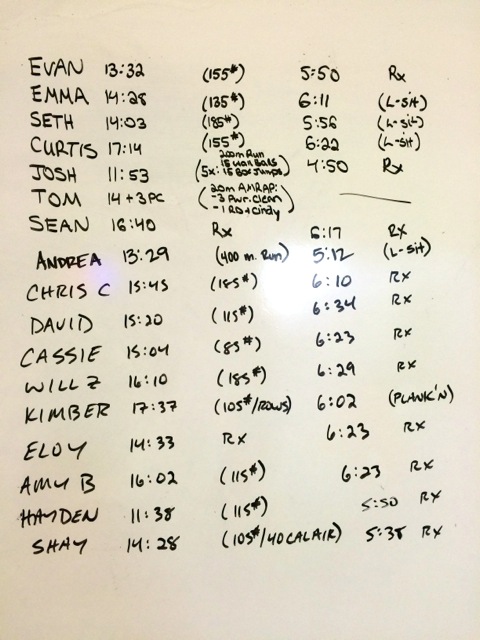 EVAN 13:32 (155#) 5:50 Rx
EMMA 14:28 (135#) 6:11 (L-sit)
SETH 14:03 (185#) 5:56 (L-sit)
CURTIS 17:14 (155#) 6:22 (L-sit)
JOSH 11:53 (5x: 200m Run 15 Wall Balls 15 Box Jumps) 4:50 Rx
TOM 14 + 3PC (20m AMRAP: -3 Pwr. Clean -1 RD + Cindy)
SEAN 16:40 Rx 6:17 Rx
ANDREA 13:29 (400 m. Run) 5:12 (L-sit)
CHRIS C 15:45 (185#) 6:10 Rx
DAVID 15:20 (115#) 6:34 Rx
CASSIE 15:04 (85#) 6:23 Rx
WILL Z 16:10 (185#) 6:29 Rx
KIMBER 17:37 (105#/ROWS) 6:02 (PLANK'N)
ELOY 14:33 Rx 6:23 Rx
AMY B 16:02 (115#) 6:23 Rx
HAYDEN 11:38 (115#) 5:50 Rx
SHAY 14:28 (105#/40CALAIR) 5:38 Rx